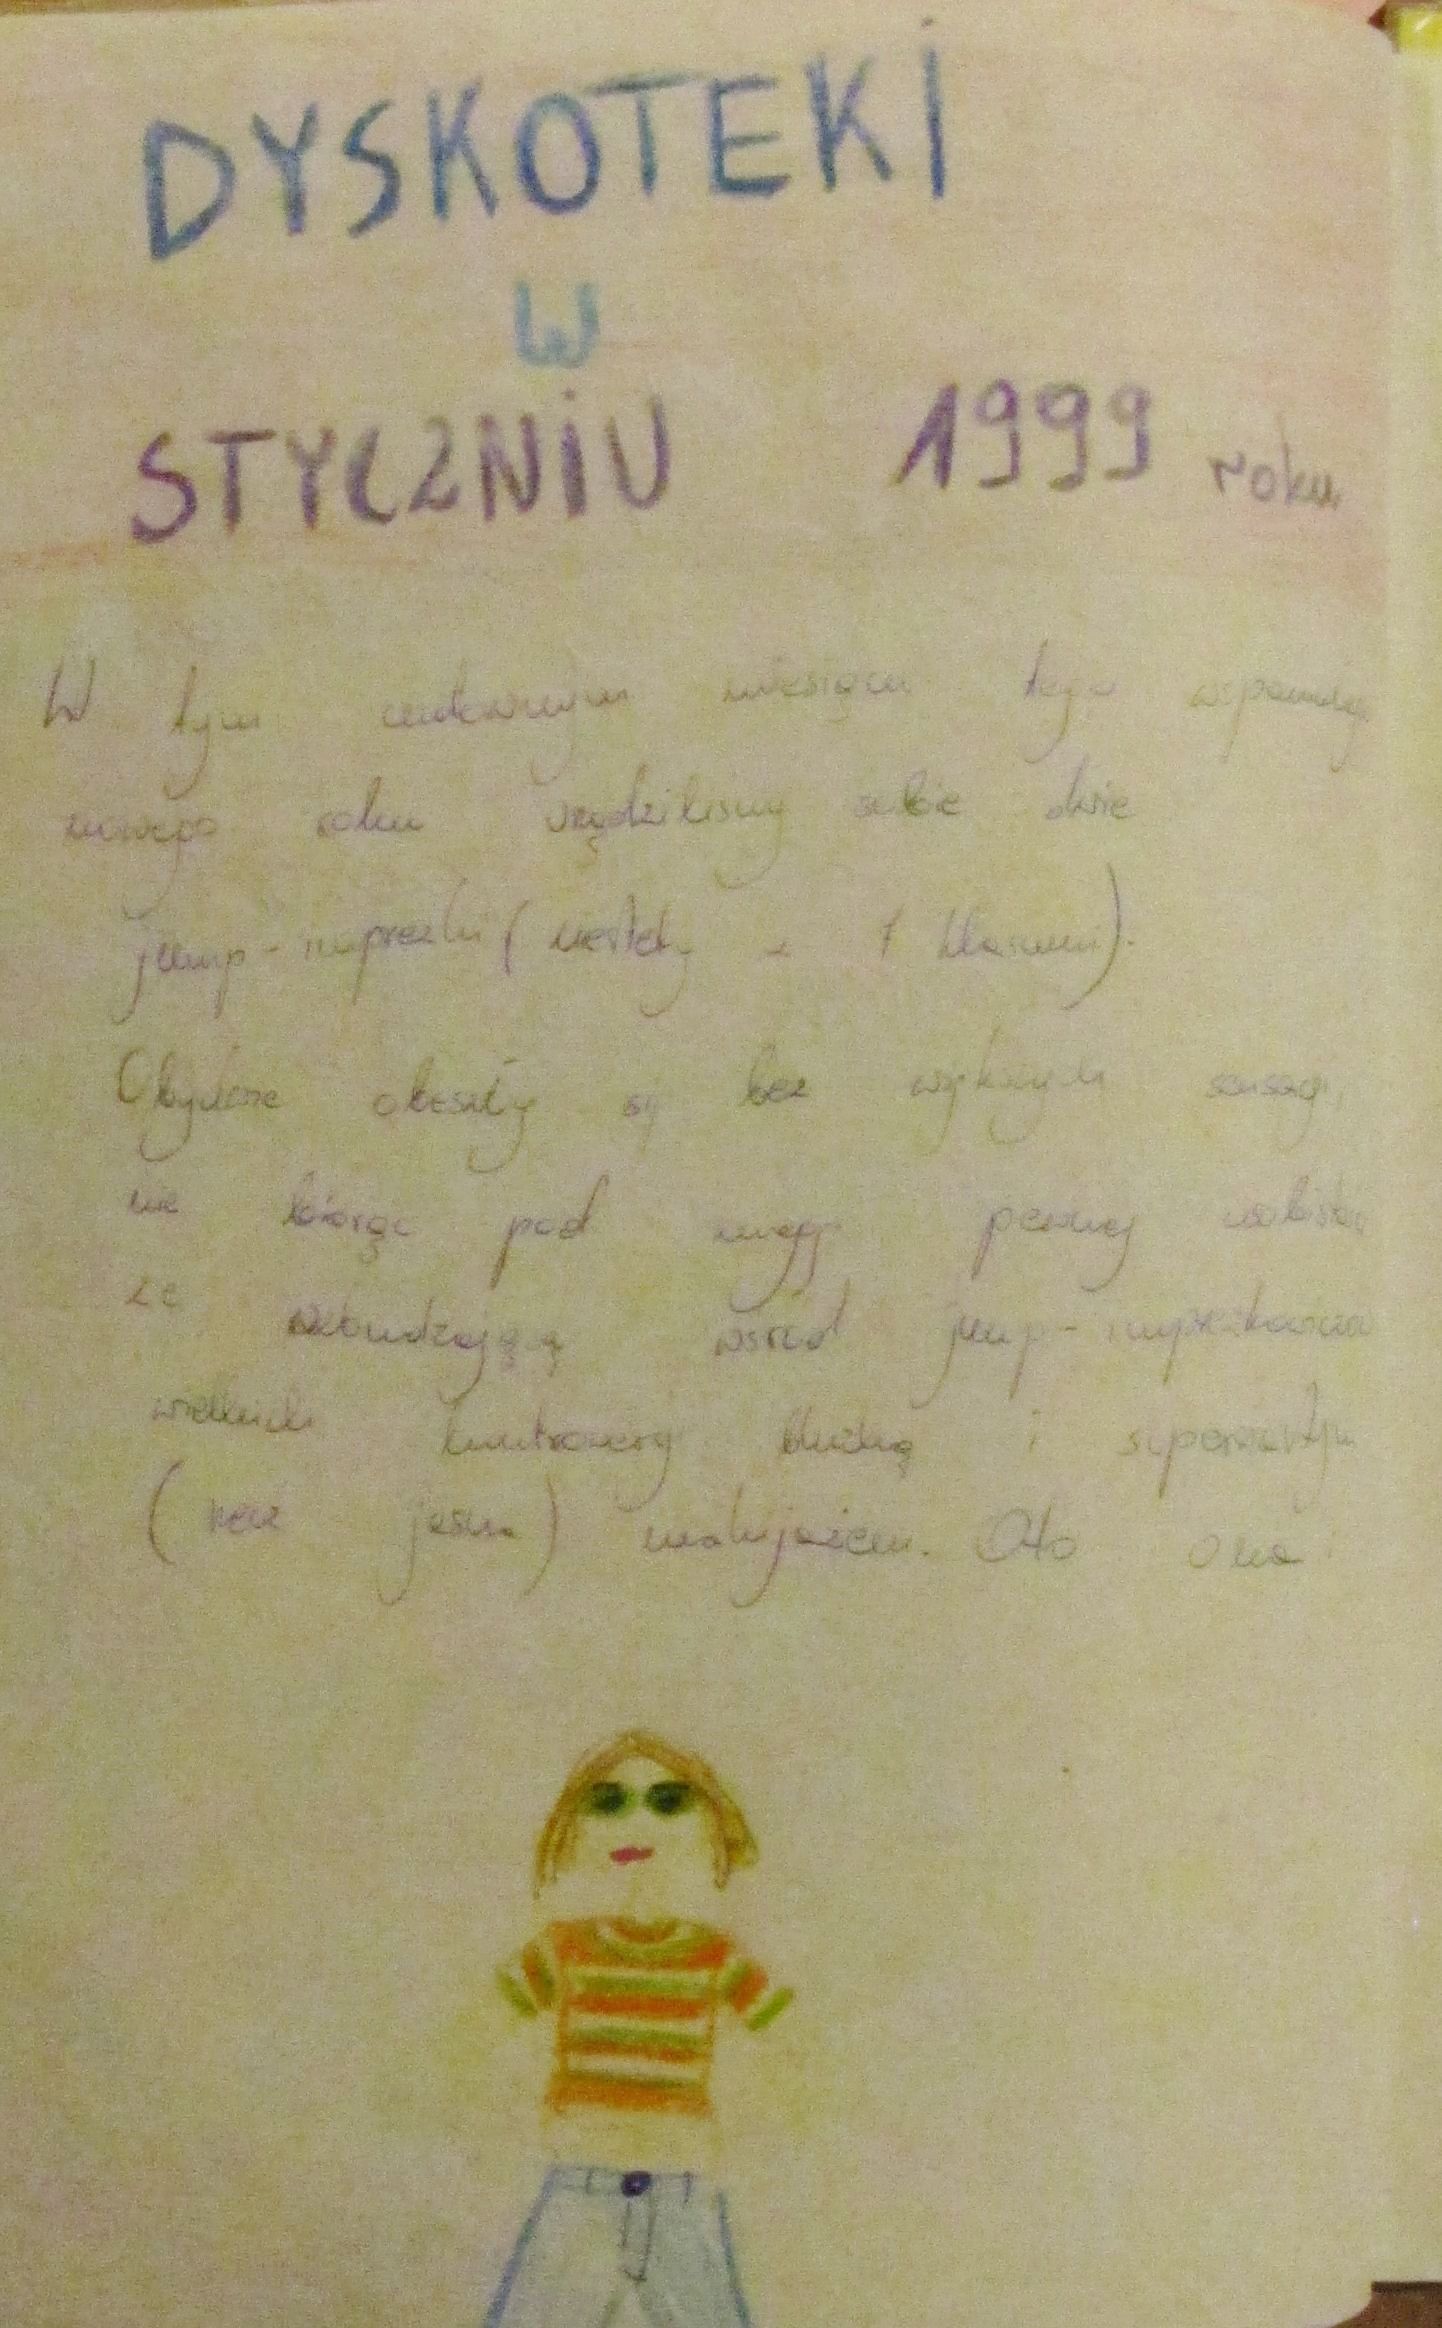 DYSKOTEKI
W
STYCZNIU 1999 roku
W tym cudownym miesiącu tego wspaniałego
nowego roku urządziliśmy sobie dwie
jump-imprezki (niestety z 1 klasami).
Obydwie obeszły się bez większych sensacji,
nie biorąc pod uwagę pewnej osobistości
ze wzbudzającą wśród jump-imprezkowiczów
wielkich kontrowersji bluzką i supermodnym
( rzecz jasna) makijażem. Oto ona: